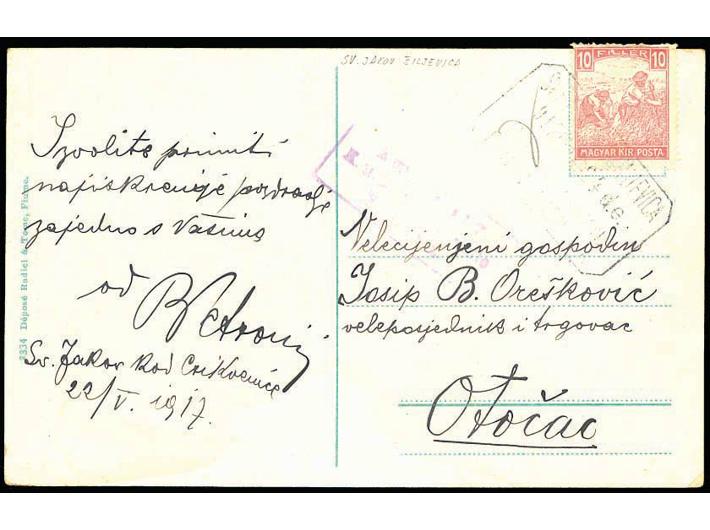 SV. JAKOV ŠILJEVICA
10 FILLÉR 10
MAGYAR KIR. POSTA
JEVICA
Izvolite primiti
najiskrenije pozdrave
zajedno s Vašima
od
Sv. Jakov kod Crikvenice
22/V. 1917.
Velecijenjeni gospodin
Josip B. Orešković
veleposjednik i trgovac
Otočac
2334 Déposé Radici & Tome, Fiume.